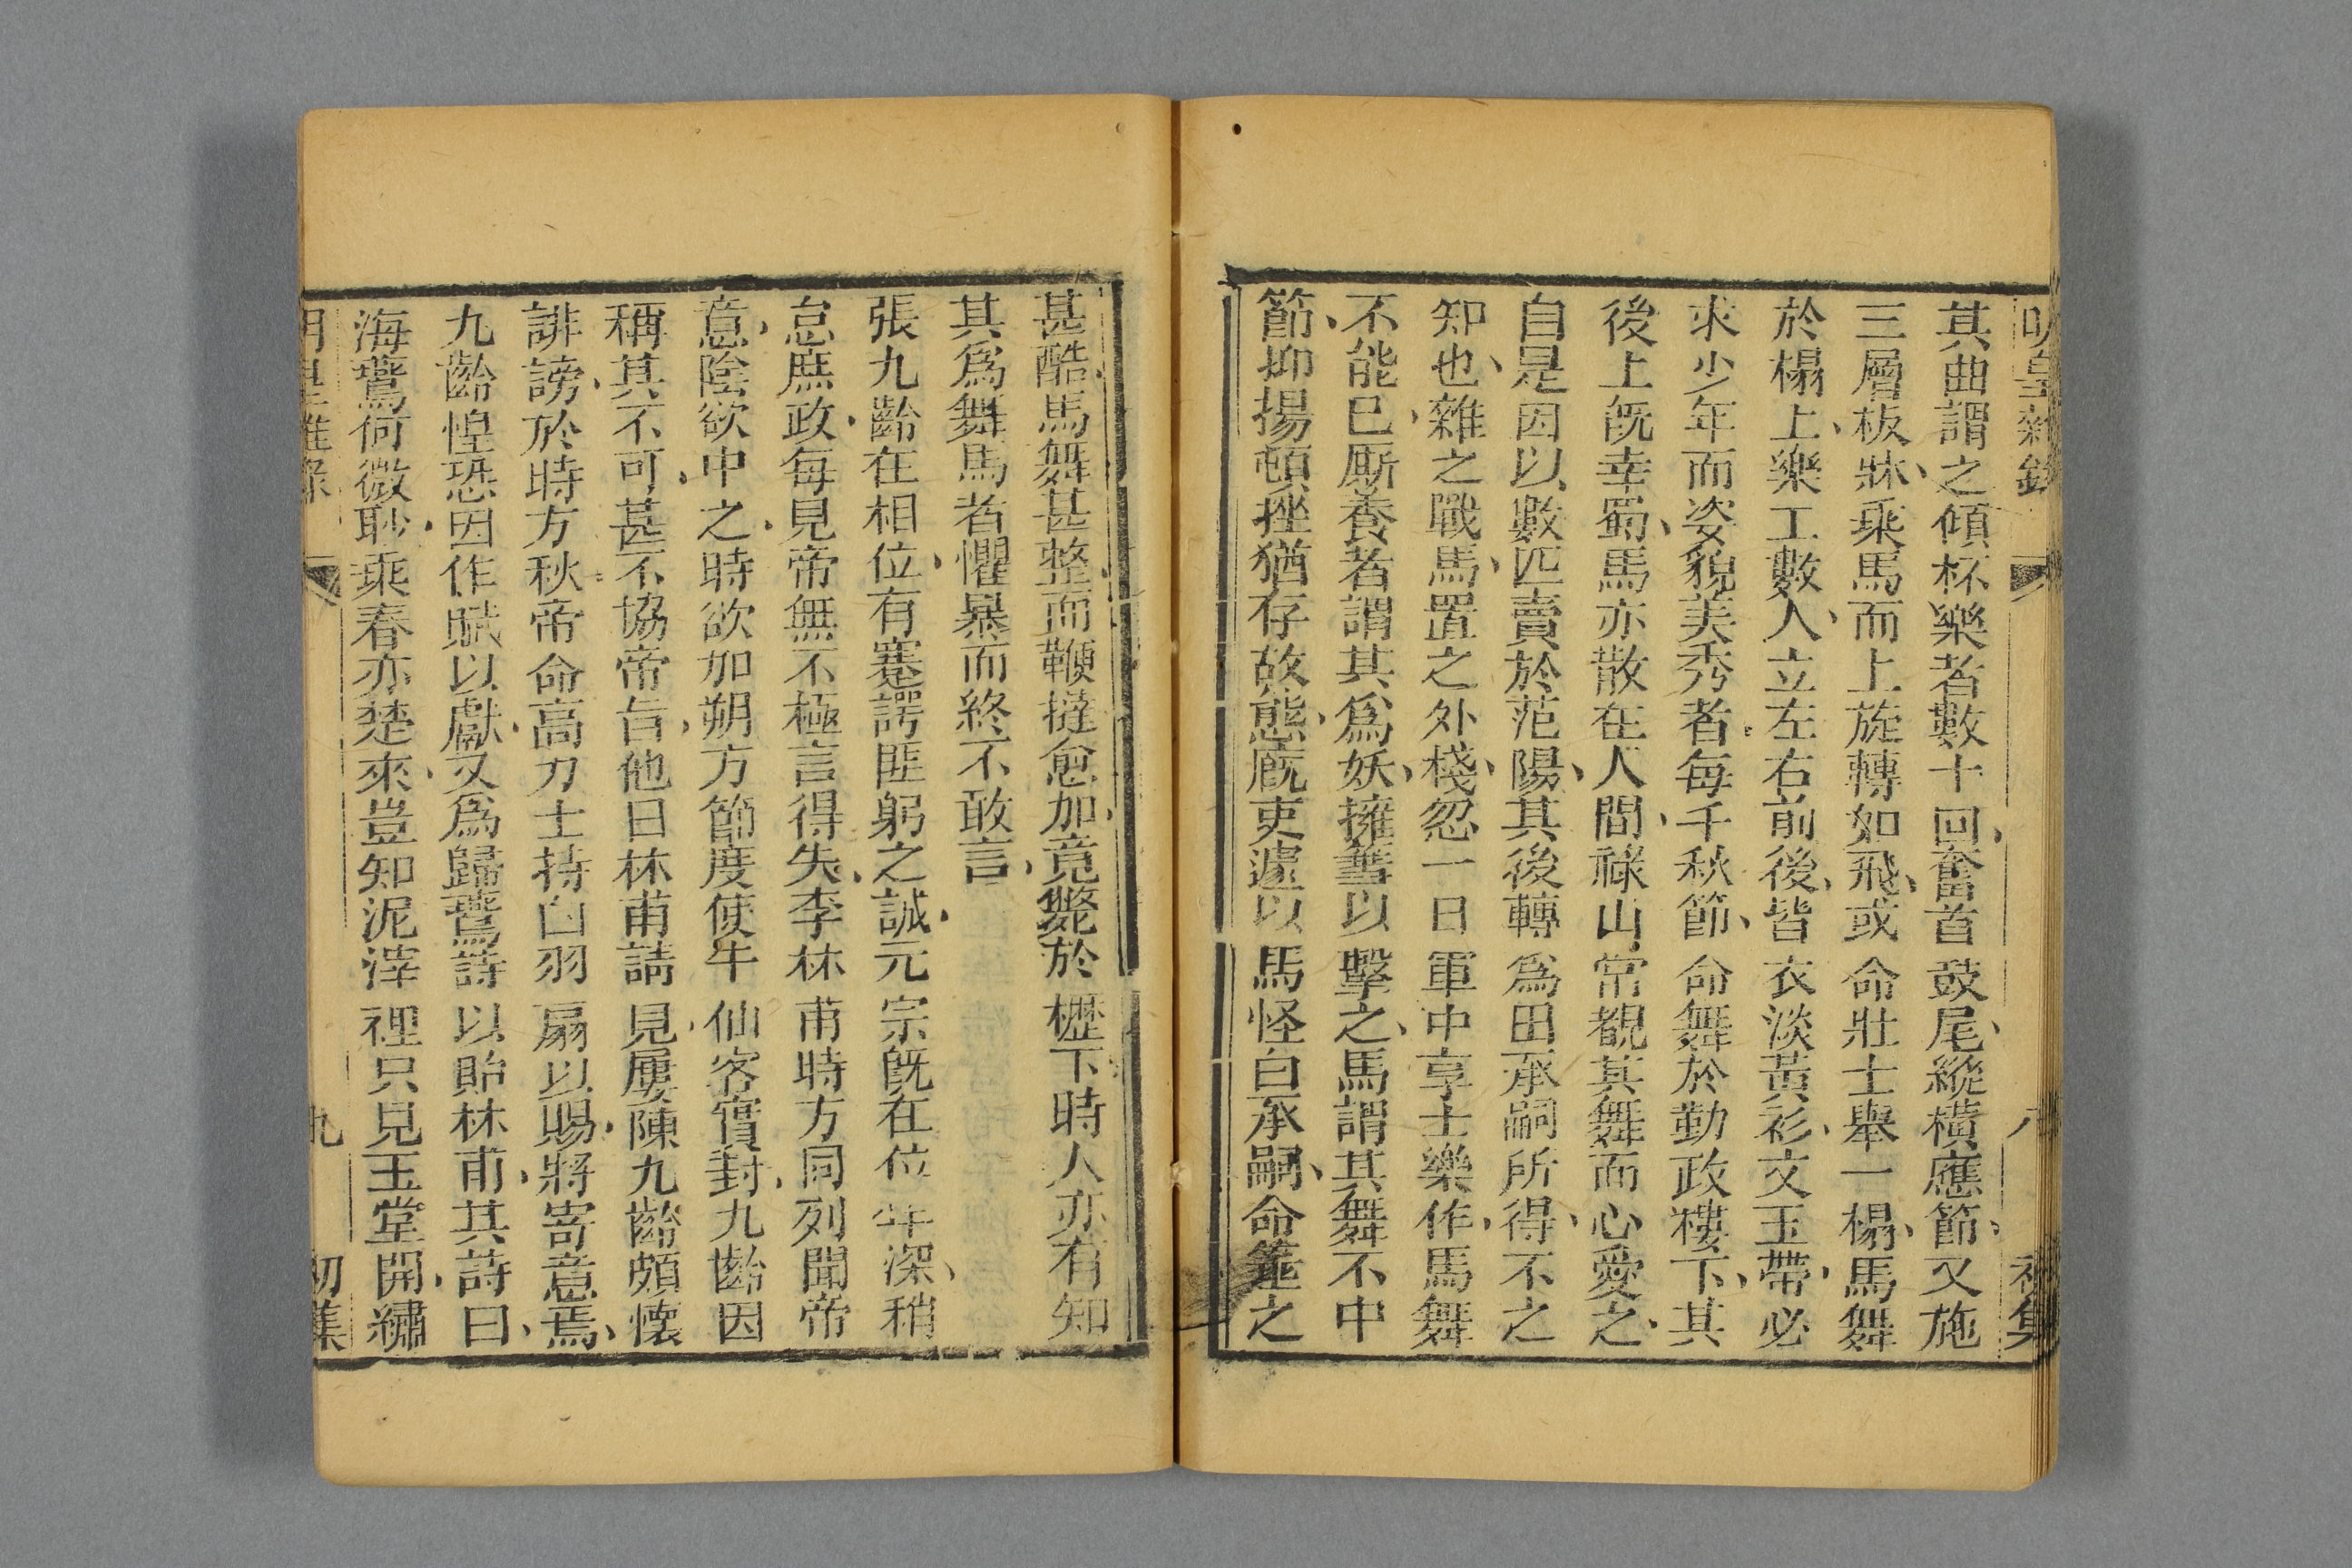 明皇雜錄 八 初集
其曲謂之傾杯樂者數十回奮首鼓尾縱橫應節又施
三層板牀乘馬而上旋轉如飛或命壯士舉一榻馬舞
於榻上樂工數人立左右前後皆衣淡黃衫文玉帶必
求少年而姿貌美秀者每千秋節命舞於勤政樓下其
後上旣幸蜀馬亦散在人間祿山常覩其舞而心愛之
自是因以數匹賣於范陽其後轉爲田承嗣所得不之
知也雜之戰馬置之外棧忽一日軍中享士樂作馬舞
不能已厮養者謂其爲妖擁篲以擊之馬謂其舞不中
節抑揚頓挫猶存故態廐吏遽以馬怪白承嗣命箠之
甚酷馬舞甚整而鞭撻愈加竟斃於櫪下時人亦有知
其爲舞馬者懼暴而終不敢言
張九齡在相位有蹇諤匪躬之誠元宗旣在位年深稍
怠庶政每見帝無不極言得失李林甫時方同列聞帝
意陰欲中之時欲加朔方節度使牛仙客實封九齡因
稱其不可甚不協帝旨他日林甫請見屢陳九齡頗懷
誹謗於時方秋帝命高力士持白羽扇以賜將寄意焉
九齡惶恐因作賦以獻又爲歸鷰詩以貽林甫其詩曰
海鷰何微眇乘春亦楚來豈知泥滓裡只見玉堂開繡
明皇雜錄 九 初集